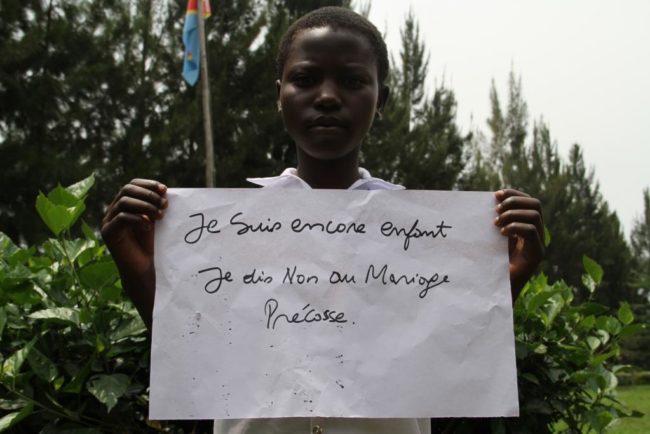 Je Suis encore enfant
Je dis Non au Mariage
Précosse.